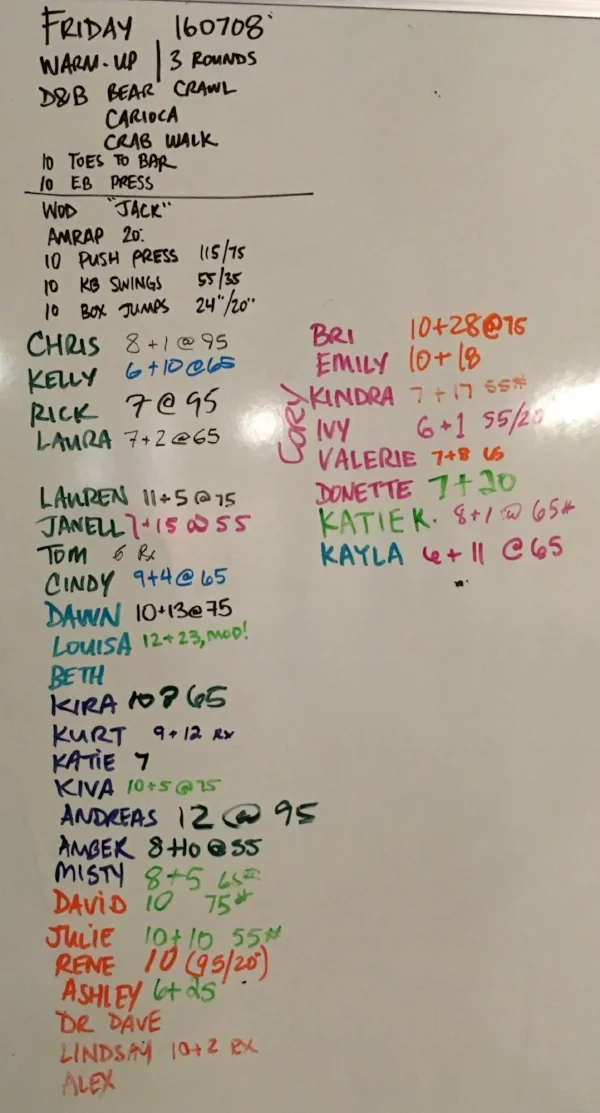 FRIDAY 160708
WARM-UP | 3 ROUNDS
D&B BEAR CRAWL
CARIOCA
CRAB WALK
10 TOES TO BAR
10 EB PRESS
WOD "JACK"
AMRAP 20:
10 PUSH PRESS 115/75
10 KB SWINGS 55/35
10 BOX JUMPS 24"/20"
CHRIS 8+1 @ 95
KELLY 6+10@65
RICK 7 @ 95
LAURA 7+2@65
LAUREN 11+5@75
JANELL 7+15 @ 55
TOM 6 Rx
CINDY 9+4@65
DAWN 10+13@75
LOUISA 12+23, MOD!
BETH
KIRA 10 @ 65
KURT 9+12 Rx
KATIE 7
KIVA 10+5@75
ANDREAS 12 @ 95
AMBER 8+10 @ 55
MISTY 8+5 65#
DAVID 10 75#
JULIE 10+10 55#
RENE 10 (95/20")
ASHLEY 6+25
DR DAVE
LINDSAY 10+2 RX
ALEX
BRI 10+28@75
EMILY 10+18
CORY
KINDRA 7+17 55#
IVY 6+1 55/20
VALERIE 7+8 65
DONETTE 7+20
KATIE K. 8+1 @ 65#
KAYLA 6+11 @65